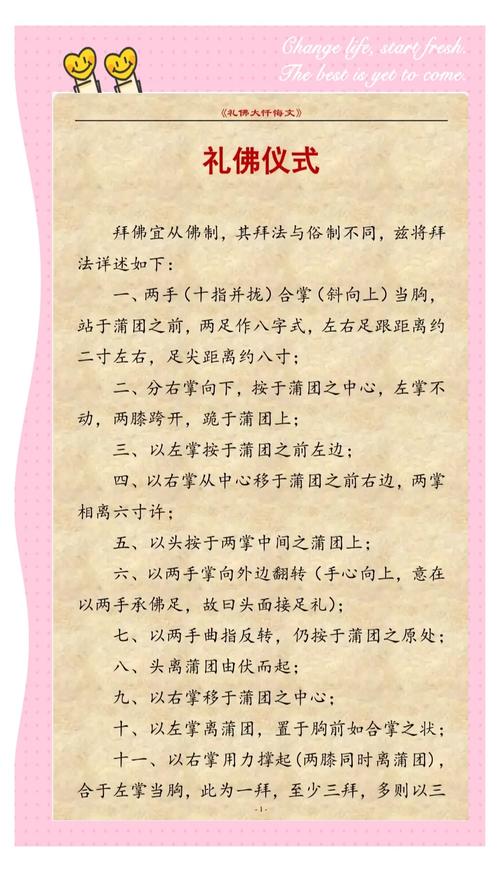 Change life, start fresh.
The best is yet to come.
《礼佛大忏悔文》
礼佛仪式
拜佛宜从佛制，其拜法与俗制不同，兹将拜
法详述如下：
一、两手（十指并拢）合掌（斜向上）当胸，
站于蒲团之前，两足作八字式，左右足跟距离约
二寸左右，足尖距离约八寸；
二、分右掌向下，按于蒲团之中心，左掌不
动，两膝跨开，跪于蒲团上；
三、以左掌按于蒲团之前左边；
四、以右掌从中心移于蒲团之前右边，两掌
相离六寸许；
五、以头按于两掌中间之蒲团上；
六、以两手掌向外边翻转（手心向上，意在
以两手承佛足，故曰头面接足礼）；
七、以两手曲指反转，仍按于蒲团之原处；
八、头离蒲团由伏而起；
九、以右掌移于蒲团之中心；
十、以左掌离蒲团，置于胸前如合掌之状；
十一、以右掌用力撑起(两膝同时离蒲团)，
合于左掌当胸，此为一拜，至少三拜，多则以三
- 1 -